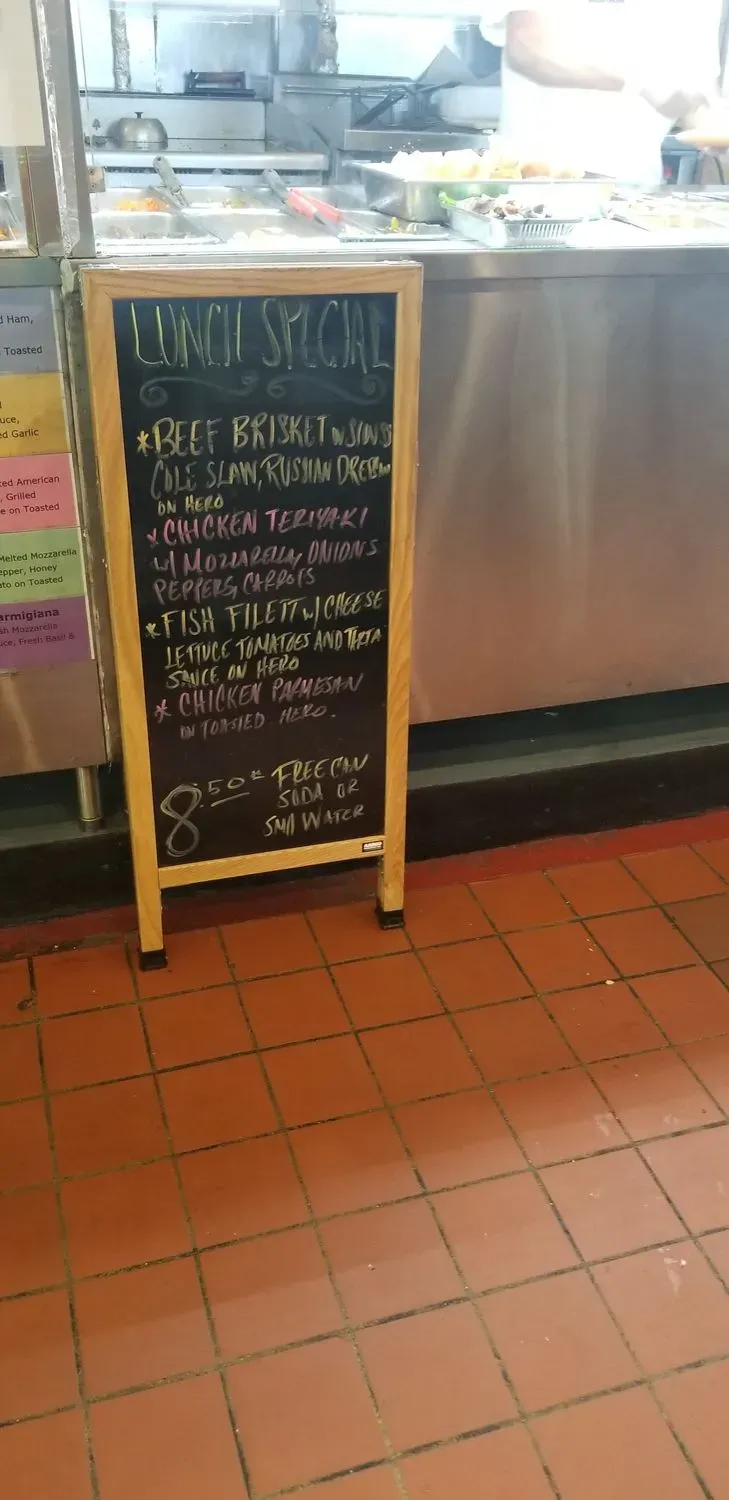 LUNCH SPECIAL
*BEEF BRISKET W SWISS
COLE SLAW, RUSSIAN
ON HERO
*CHICKEN TERIYAKI
W/ MOZZARELLA, ONIONS
PEPPERS, CARROTS
*FISH FILETT W/ CHEESE
LETTUCE TOMATOES AND TARTA
SAUCE ON HERO
*CHICKEN PARMESAN
ON TOASTED HERO.
8.50 FREE CAN
SODA OR
SMALL WATER
d Ham,
Toasted
uce,
ed Garlic
ted American
, Grilled
e on Toasted
Melted Mozzarella
epper, Honey
ato on Toasted
armigiana
sh Mozzarella
uce, Fresh Basil &